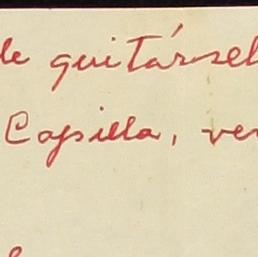 de quitársel
Capilla, ver